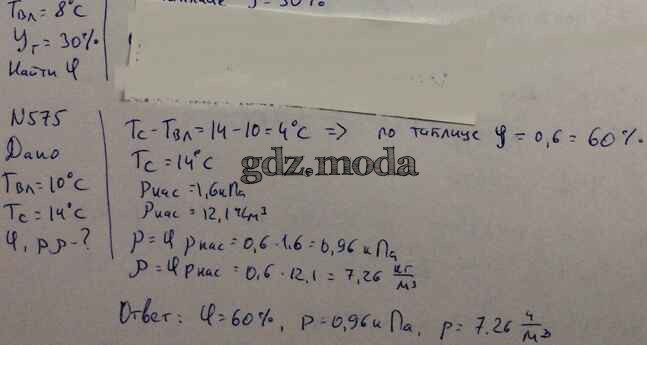 Tвл = 8°С
φг = 30%
Найти φ
N575
Дано
Tвл = 10°С
Tс = 14°С
φ, p ρ - ?
Tс - Tвл = 14 - 10 = 4°С => по таблице φ = 0,6 = 60%.
Tс = 14°С
gdz.moda
Pнас = 1,6 кПа
ρнас = 12,1 г/м³
p = φ pнас = 0,6 · 1.6 = 0,96 кПа
ρ = φ ρнас = 0,6 · 12,1 = 7,26 кг/м³
Ответ: φ = 60%, p = 0,96 кПа, ρ = 7.26 г/м³